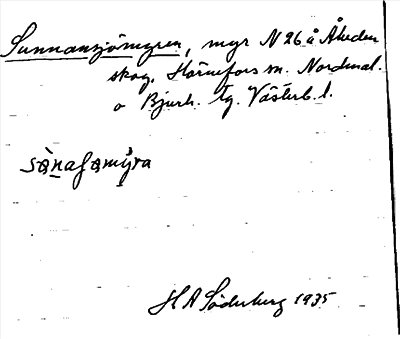 Sunnansjömyren, myr N 26 å Åheden
skog, Hörnefors sn. Nordmal.
o Bjurh. tg. Västerb. l.
sànafamy̆ra
H A Söderberg 1935